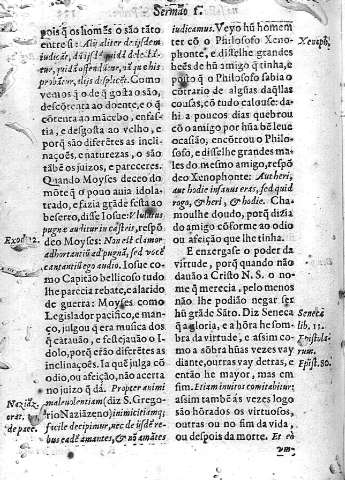 Sermão I.
pois q̃ os homẽs o são tãto
entre si: Aliter de ijsdem
iudicãt,
Como
vemos q̃ o de q̃ gosta o são,
descõtenta ao doente, e o q̃
cõtenta ao mãcebo, enfas-
tia, e desgosta ao velho, e
porq̃ são diferẽtes as incli-
nações, e naturezas, o são
tãbẽ os juizos, e pareceres.
Quando Moyses deceo do
mõte q̃ o pouo aua idola-
trado, e fazia grãde festa ao
beserro, disse Iosue: Vlulatus
pugnæ auditur in castris, respõ-
deo Moyses: Non est clamor
adhortantiũ ad pugnã, sed vocẽ
cantantiũ ego audio. Iosue co-
mo Capitão bellicoso tudo
lhe parecia rebate, e alarido
de guerra: Moyses como
Legislador pacifico, e man-
ço, julgou q̃ era musica dos
q̃ catauão, e festejauão o I-
dolo, porq̃ erão diferẽtes as
inclinações. Ia que julga cõ
odio, ou afeição, não acerta
no juizo q̃ dá. Propter animi
maleuolentiam (diz S. Grego-
rio Naziãzeno) inimicitiamq;
facile decipimur, nec de ijsdẽ re-
bus eadẽ amantes, & nõ amãtes
Exod. 32.
Naziãz.
orat.
de pace.
iudicamus. Veyo hũ homem
ter cõ o Philosofo Xeno-
phonte, e disselhe grandes
beẽs de hũ amigo q̃ tinha, e
posto q̃ o Philosofo sabia o
cõtrario de algũas daq̃llas
cousas, cõ tudo calouse: da-
hi a poucos dias quebrou
cõ o amigo por hũa bẽ leue
ocasião, encõtrou o Philo-
sofo, e disselhe grandes ma-
les do mesmo amigo, respõ
deo Xenophonte: Aut heri,
aut hodie insanus eras, sed quid
rogo, & heri, & hodie. Cha-
moulhe doudo, porq̃ dizia
do amigo cõforme ao odio
ou afeição que lhe tinha.
E enxergase o poder da
virtude, porq̃ quando não
dauão a Cristo N. S. o no-
me q̃ merecia, pelo menos
não lhe podião negar ser
hũ grãde Sãto. Diz Seneca
q̃ a gloria, e a hõra he som-
bra da virtude, e assim co-
mo a sõbra hũas vezes vay
diante, outras vay detras, e
então he mayor, mas em
fim. Etiam inuitos comitabitur;
assim tambẽ ás vezes logo
são hõrados os virtuosos,
outras ou no fim da vida,
ou despois da morte. Et eò
Xenoph.
Seneca
lib. 11.
Epistola-
rum.
Epist. 80.